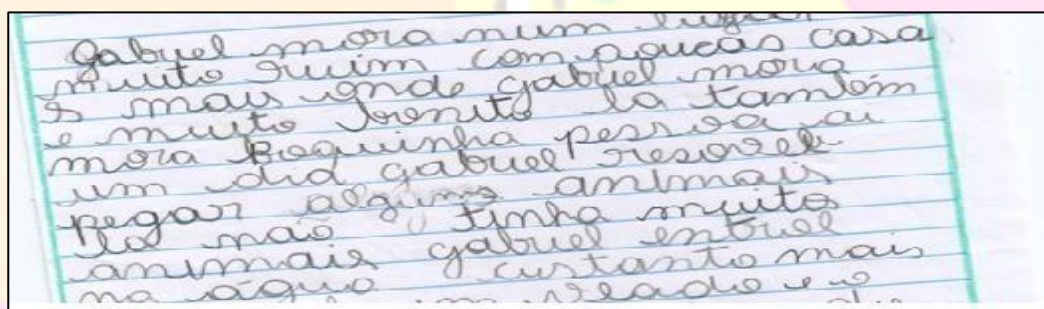 gabriel mora num lugar
muito ruim com poucas casa
s mais onde gabriel mora
e muito bonito la também
mora poquinha pessoa ai
um dia gabriel resovel
pegar alguns animais
la mão tinha muito
animais gabriel entrol
na água custanto mais
veado e o